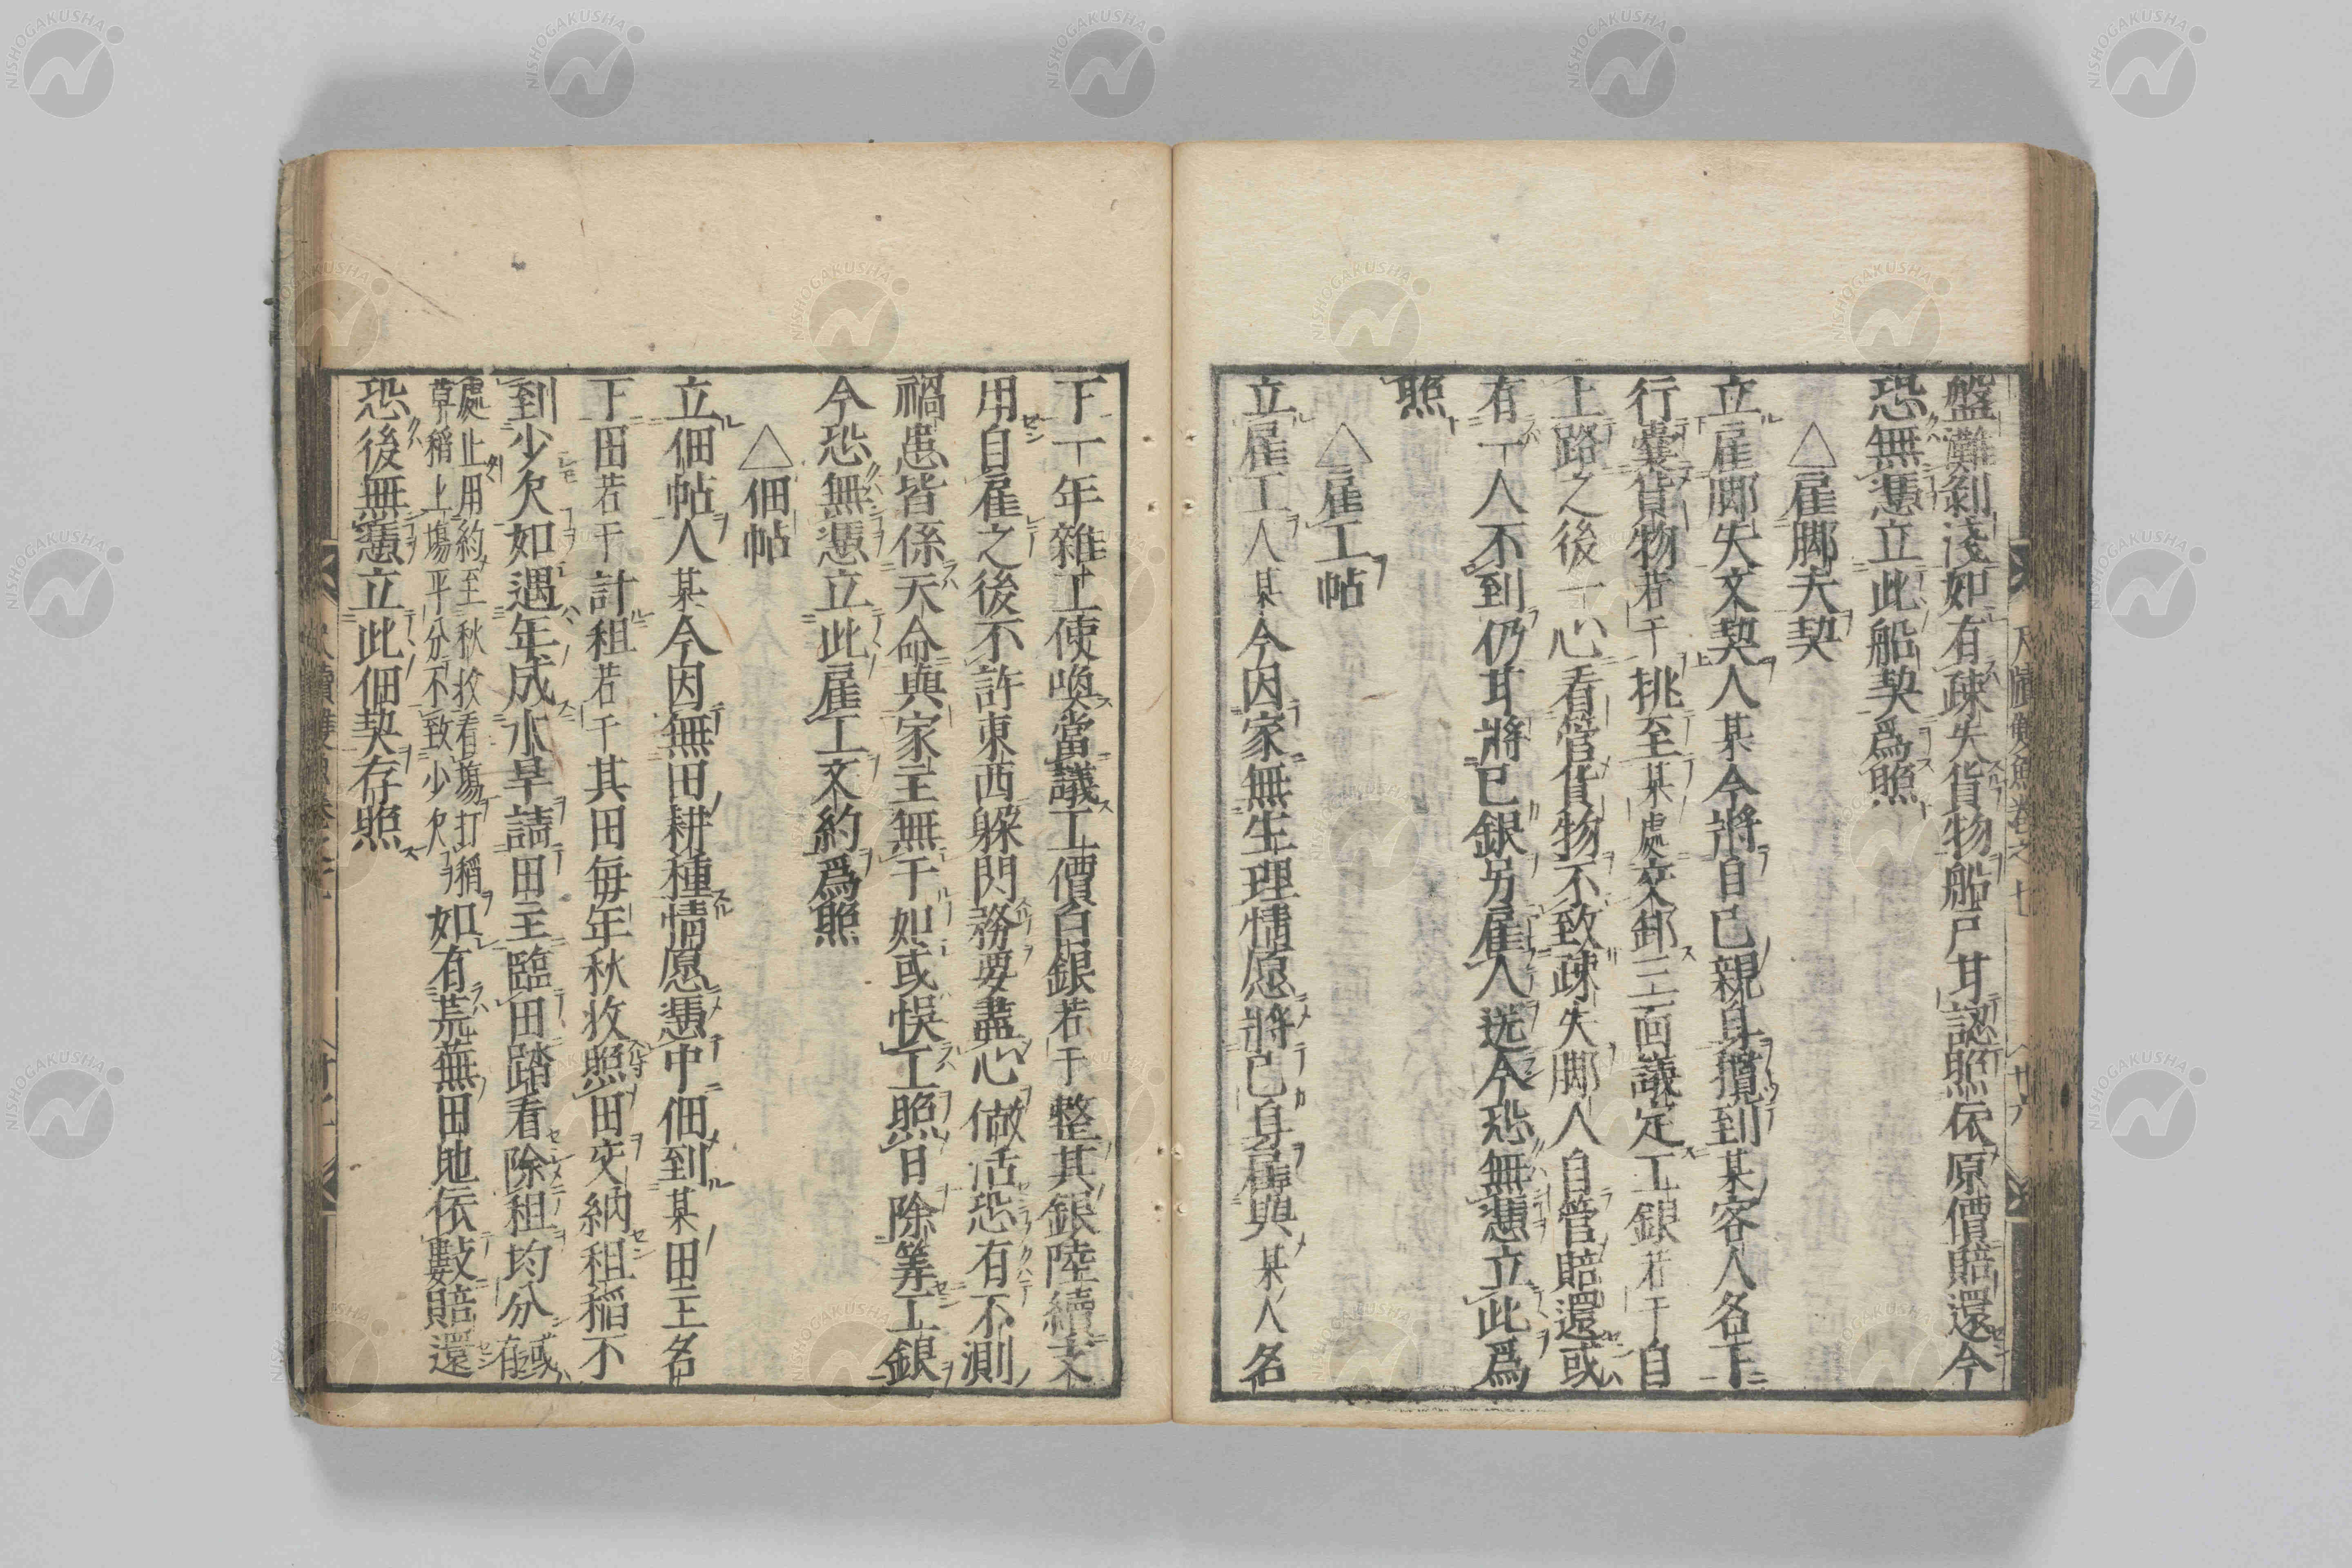 盤灘剝淺如有疎失貨物船戸甘認照依原價賠還今
恐無憑立此船契爲照
△雇脚夫契
立雇脚夫文契人某今將自己親身攬到某客人名下
行囊貨物若干挑至某處交卸三面議定工銀若干自
上路之後一心看管貨物不致疎失脚人自管賠還或
有一人不到仍甘將已銀另雇人送今恐無憑立此爲
照
△雇工帖
立雇工人某今因家無生理情愿將己身雇與某人名
下一年雜工使喚當議工價白銀若干整其銀陸續支
用自雇之後不許東西躱閃務要盡心做活恐有不測
禍患皆係天命與家主無干如或悞工照日除筭工銀
今恐無憑立此雇工文約爲照
△佃帖
立佃帖人某今因無田耕種情愿憑中佃到某田主名
下田若干計租若干其田毎年秋收照田交納租稲不
到少欠如遇年成水旱請田主臨田踏看除租均分或在
處止用約至秋收看塲打稲
草稲上塲平分不致少欠
如有荒蕪田地依數賠還
恐後無憑立此佃契存照
尺牘雙魚卷之七
廿六
NISHOGAKUSHA